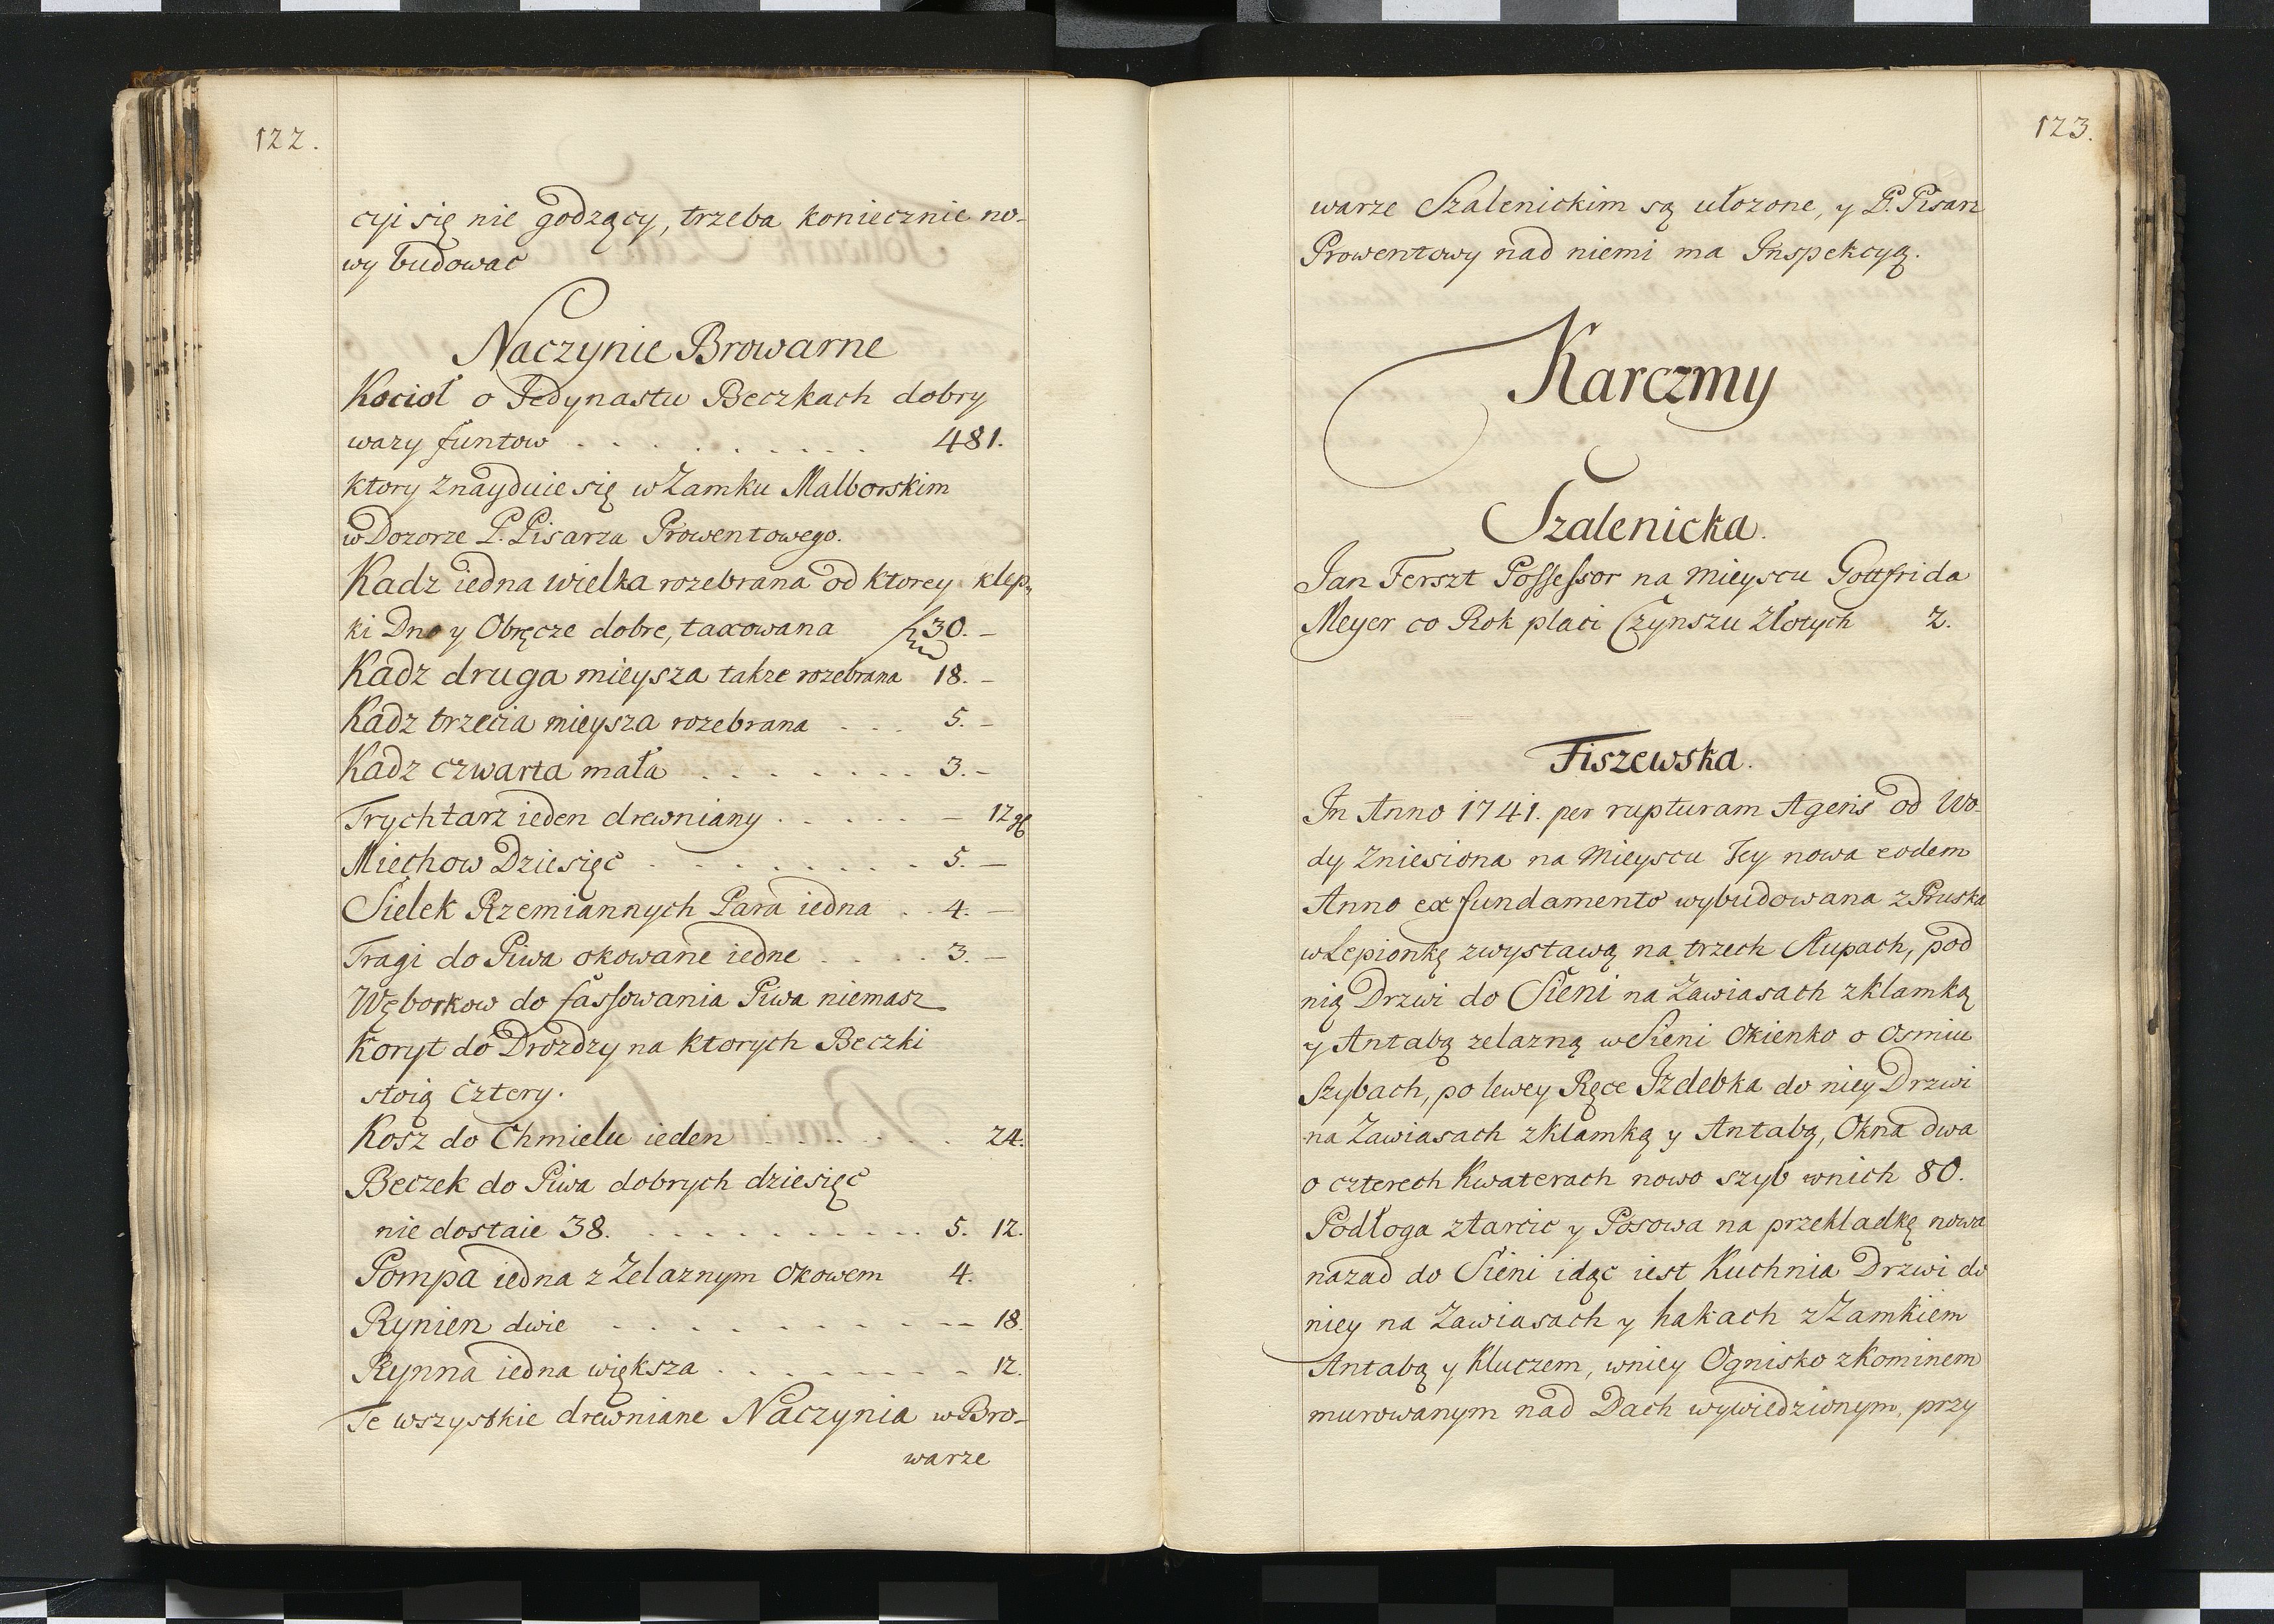 122.
cyi się nie godzący, trzeba koniecznie no-
wy budowac
Naczynie Browarne
Kocioł o Jedynastu Beczkach dobry
wazy funtow . . . . . . . . . 481.
ktory znayduie się w Zamku Malborskim
w Dozorze P. Pisarza Prowentowego.
Kadz iedna wielka rozebrana od ktorey klep-
ki Dno y Obręcze dobre, taxowana 30. –
Kadz druga mieysza takze rozebrana 18. –
Kadz trzecia mieysza rozebrana . . . 5. –
Kadz czwarta mała . . . . . . . . 3. –
Trychtarz ieden drewniany . . . . . – 12 gl
Miechow Dziesięć . . . . . . . . 5. –
Sielek Rzemiannych Para iedna . . 4. –
Tragi do Piwa okowane iedne . . . . 3. –
Węborkow do fassowania Piwa niemasz
Koryt do Drozdzy na ktorych Beczki
stoią cztery.
Kosz do Chmielu ieden . . . . . . . 24.
Beczek do Piwa dobrych dziesięć
nie dostaie 38. . . . . . . . . . . 5. 12.
Pompa iedna z Zelaznym okowem 4.
Rynien dwie . . . . . . . . . – – 18.
Rynna iedna większa . . . . . . . – 12.
Te wszystkie drewniane Naczynia w Bro-
warze
123.
warze Szalenickim są ułozone, y P. Pisarz
Prowentowy nad niemi ma Inspekcyą.
Karczmy
Szalenicka.
Jan Ferszt Possessor na mieyscu Gottfrida
Meyer co Rok płaci Czynszu Złotych 2.
Fiszewska.
In Anno 1741. per rupturam Ageris od Wo-
dy zniesiona na Mieyscu Tey nowa eodem
Anno ex fundamento wybudowana z Pruska
w Lepionkę z wystawą na trzech słupach, pod
nią Drzwi do Sieni na Zawiasach z klamką
y Antabą zelazną w Sieni Okienko o osmiu
szybach, po lewey Ręce Izdebka do niey Drzwi
na Zawiasach z klamką y Antabą, Okna dwa
o czterech Kwaterach nowo szyb w nich 80.
Podłoga z tarcic y Posowa na przekladkę nowa
nazad do Sieni idąc iest Kuchnia Drzwi do
niey na Zawiasach y hakach z Zamkiem
Antabą y Kluczem, w niey Ognisko z Kominem
murowanym nad Dach wywiedzionym, przy